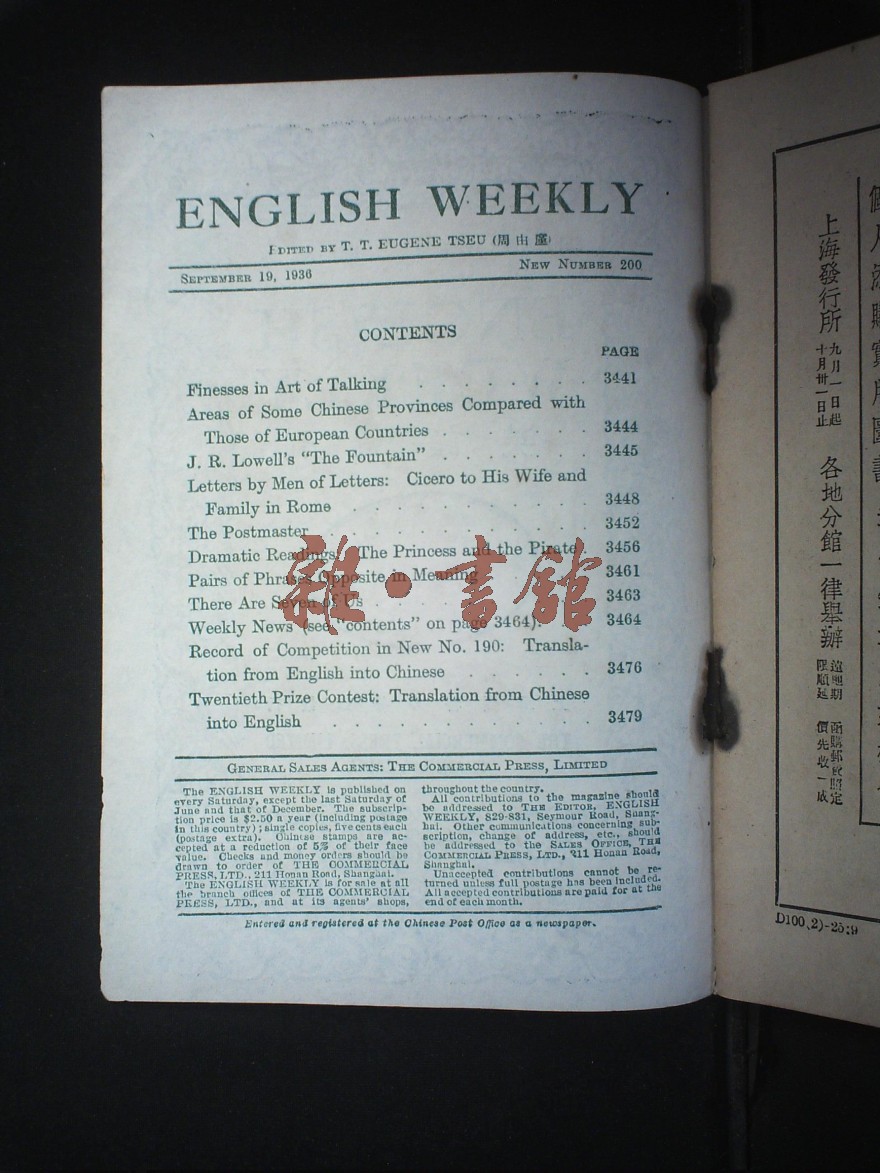 ENGLISH WEEKLY
EDITED BY T. T. EUGENE TSEU (周由廑)
SEPTEMBER 19, 1936
NEW NUMBER 200
CONTENTS
PAGE
Finesses in Art of Talking . . . . . . . . 3441
Areas of Some Chinese Provinces Compared with
Those of European Countries . . . . . . . 3444
J. R. Lowell's "The Fountain" . . . . . . . 3445
Letters by Men of Letters: Cicero to His Wife and
Family in Rome . . . . . . . . . . . 3448
The Postmaster . . . . . . . . . . . . 3452
Dramatic Readings: The Princess and the Pirate . 3456
Pairs of Phrases Opposite in Meaning . . . . . 3461
There Are Seven of Us . . . . . . . . . 3463
Weekly News (see "contents" on page 3464). . . 3464
Record of Competition in New No. 190: Transla-
tion from English into Chinese . . . . . . 3476
Twentieth Prize Contest: Translation from Chinese
into English . . . . . . . . . . . . 3479
雜·書館
GENERAL SALES AGENTS: THE COMMERCIAL PRESS, LIMITED
The ENGLISH WEEKLY is published on
every Saturday, except the last Saturday of
June and that of December. The subscrip-
tion price is $2.50 a year (including postage
in this country); single copies, five cents each
(postage extra). Chinese stamps are ac-
cepted at a reduction of 5% of their face
value. Checks and money orders should be
drawn to order of THE COMMERCIAL
PRESS, LTD., 211 Honan Road, Shanghai.
The ENGLISH WEEKLY is for sale at all
the branch offices of THE COMMERCIAL
PRESS, LTD., and at its agents' shops,
throughout the country.
All contributions to the magazine should
be addressed to THE EDITOR, ENGLISH
WEEKLY, 829-831, Seymour Road, Shang-
hai. Other communications concerning sub-
scription, change of address, etc., should
be addressed to the SALES OFFICE, THE
COMMERCIAL PRESS, LTD., 211 Honan Road,
Shanghai.
Unaccepted contributions cannot be re-
turned unless full postage has been included.
All accepted contributions are paid for at the
end of each month.
Entered and registered at the Chinese Post Office as a newspaper.
上海發行所
九月一日起
十月卅一日止
各地分館一律舉辦
D100(2)-25:9